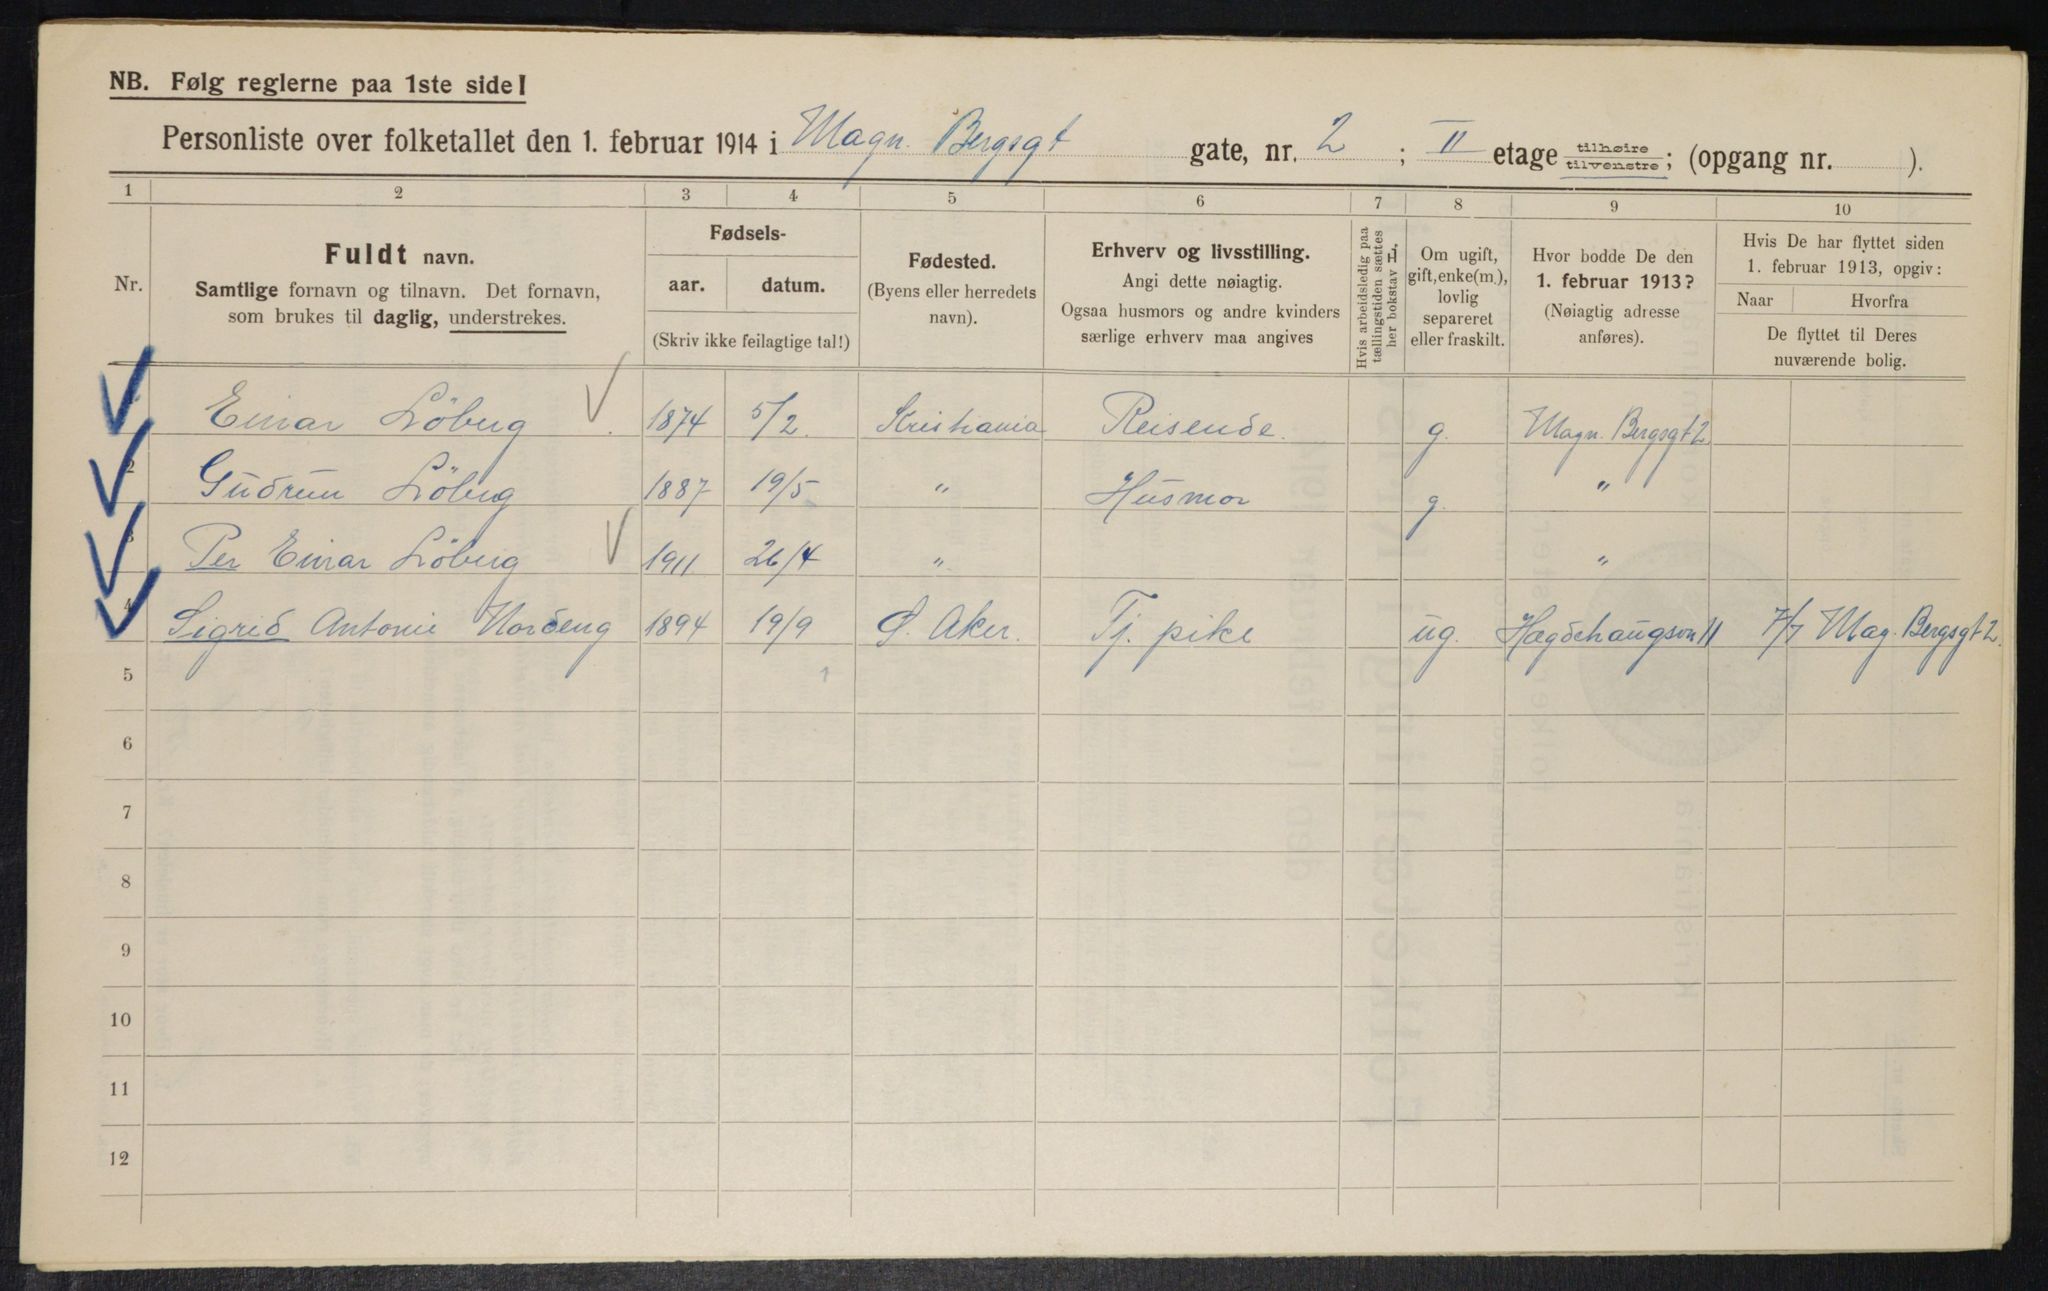 NB. Følg reglerne paa 1ste side!
Personliste over folketallet den 1. februar 1914 i Magn. Bergsgt gate, nr. 2 ; II etage tilhøire tilvenstre; (opgang nr. ).
1 2 3 4 5 6 7 8 9 10
Nr.
Fuldt navn.
Samtlige fornavn og tilnavn. Det fornavn,
som brukes til daglig, understrekes.
Fødsels-
aar. datum.
(Skriv ikke feilagtige tal!)
Fødested.
(Byens eller herredets
navn).
Erhverv og livsstilling.
Angi dette nøiagtig.
Ogsaa husmors og andre kvinders
særlige erhverv maa angives
Hvis arbeidsledig paa
tællingstiden sættes
her bokstav L,
Om ugift,
gift, enke(m.),
lovlig
separeret
eller fraskilt.
Hvor bodde De den
1. februar 1913?
(Nøiagtig adresse
anføres).
Hvis De har flyttet siden
1. februar 1913, opgiv:
Naar Hvorfra
De flyttet til Deres
nuværende bolig.
Einar Löberg 1874 5/2 Kristiania Reisende. g. Magn. Bergsgt 2
2 Gudrun Löberg 1887 19/5 " Husmor g. "
3 Per Einar Löberg 1911 26/4 " "
4 Sigrid Antonie Nordeng 1894 19/9 Ø. Aker. Tj. pike ug. Hægdehaugsvn 11 7/7 Mag. Bergsgt 2.
5
6
7
8
9
10
11
12